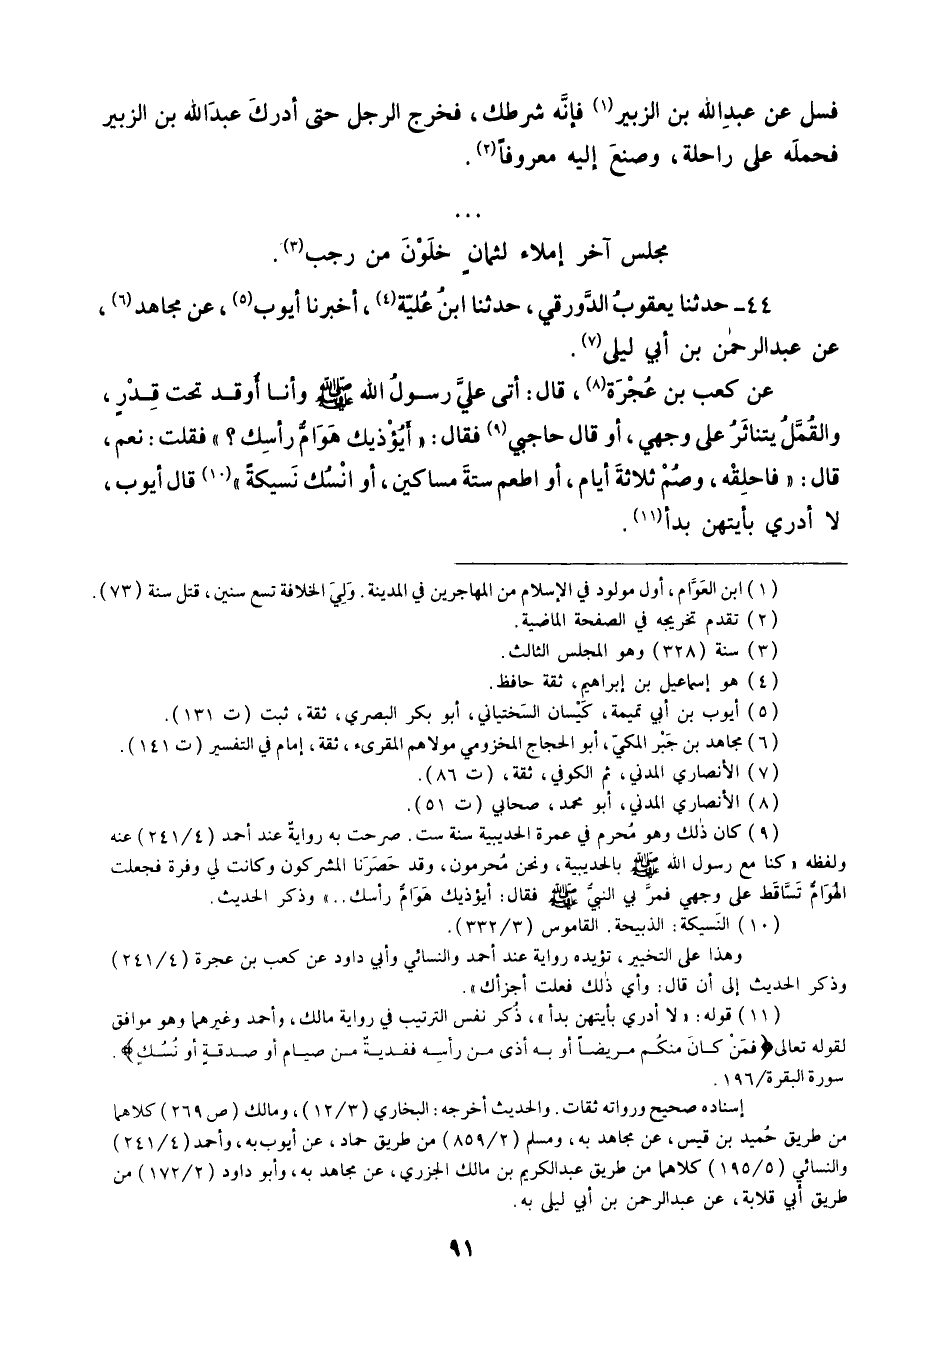 فسل عن عبدِالله بن الزبير(١) فإنَّه شرطك، فخرج الرجل حتى أدركَ عبدَالله بن الزبير
فحملَه على راحلة، وصنعَ إليه معروفاً(٢).
...
مجلس آخر إملاء لثمانٍ خلَوْنَ من رجب(٣).
٤٤- حدثنا يعقوبُ الدَّورقي، حدثنا ابنُ عُليّة(٤)، أخبرنا أيوب(٥)، عن مجاهد(٦)،
عن عبدالرحمٰن بن أبي ليلى(٧).
عن كعب بن عُجْرَة(٨)، قال: أتى عليَّ رسولُ الله ﷺ وأنا أُوقد تحت قِدْرٍ،
والقُمَّلُ يتناثَرُ على وجهي، أو قال حاجبي(٩) فقال: «أَيُؤْذيك هَوَامُّ رأسِك؟» فقلت: نعم،
قال: «فاحلِقْه، وصُمْ ثلاثةَ أيام، أو اطعم ستةَ مساكين، أو انْسُك نَسيكةً»(١٠) قال أيوب،
لا أدري بأيتهن بدأ(١١).
(١) ابن العَوَّام، أول مولود في الإسلام من المهاجرين في المدينة. وَلِيَ الخلافة تسع سنين، قتل سنة (٧٣).
(٢) تقدم تخريجه في الصفحة الماضية.
(٣) سنة (٣٢٨) وهو المجلس الثالث.
(٤) هو إسماعيل بن إبراهيم، ثقة حافظ.
(٥) أيوب بن أبي تميمة، كَيْسان السَختياني، أبو بكر البصري، ثقة، ثبت (ت ١٣١).
(٦) مجاهد بن جَبْر المكيّ، أبو الحجاج المخزومي مولاهم المقرىء، ثقة، إمام في التفسير (ت ١٤١).
(٧) الأنصاري المدني، ثم الكوفي، ثقة، (ت ٨٦).
(٨) الأنصاري المدني، أبو محمد، صحابي (ت ٥١).
(٩) كان ذٰلك وهو مُحرم في عمرة الحديبية سنة ست. صرحت به روايةٌ عند أحمد (٢٤١/٤) عنه
ولفظه «كنا مع رسول الله ﷺ بالحديبية، ونحن مُحرمون، وقد حَصَرَنا المشركون وكانت لي وفرة فجعلت
الهَوَامُّ تَسَّاقَط على وجهي فمرَّ بي النبيَّ ﷺ فقال: أيؤذيك هَوَامُّ رأسك..» وذكر الحديث.
(١٠) النَسيكة: الذبيحة. القاموس (٣٣٢/٣).
وهذا على التخيير، تؤيده رواية عند أحمد والنسائي وأبي داود عن كعب بن عجرة (٢٤١/٤)
وذكر الحديث إلى أن قال: وأي ذٰلك فعلت أجزأك».
(١١) قوله: «لا أدري بأيتهن بدأ»، ذُكر نفس الترتيب في رواية مالك، وأحمد وغيرهما وهو موافق
لقوله تعالى ﴿فمَنْ كانَ منكُم مريضاً أو به أذى من رأسِه ففديةٌ من صيام أو صدقةٍ أو نُسُكٍ﴾.
سورة البقرة/١٩٦.
إسناده صحيح ورواته ثقات. والحديث أخرجه: البخاري (١٢/٣)، ومالك (ص ٢٦٩) كلاهما
من طريق حُميد بن قيس، عن مجاهد به، ومسلم (٨٥٩/٢) من طريق حماد، عن أيوب به، وأحمد (٢٤١/٤)
والنسائي (١٩٥/٥) كلاهما من طريق عبدالكريم بن مالك الجزري، عن مجاهد به، وأبو داود (١٧٢/٢) من
طريق أبي قلابة، عن عبدالرحمن بن أبي ليلى به.
٩١